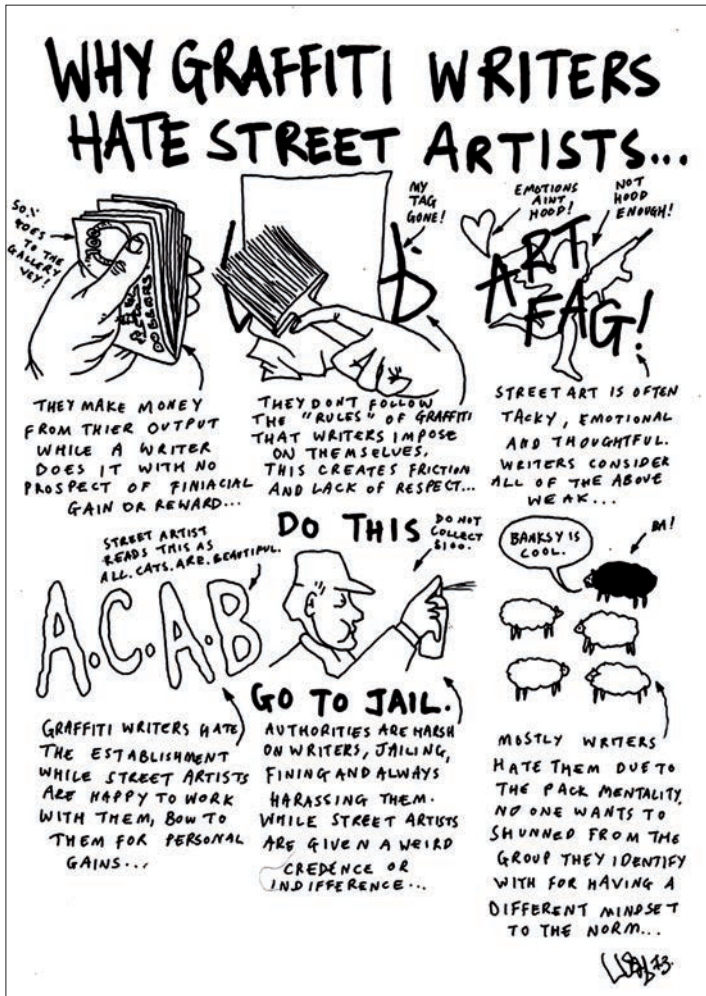 WHY GRAFFITI WRITERS
HATE STREET ARTISTS...
GOES
TO THE
GALLERY
100
THEY MAKE MONEY
FROM THIER OUTPUT
WHILE A WRITER
DOES IT WITH NO
PROSPECT OF FINIACIAL
GAIN OR REWARD...
MY
TAG
GONE!
THEY DON'T FOLLOW
THE "RULES" OF GRAFFITI
THAT WRITERS IMPOSE
ON THEMSELVES.
THIS CREATES FRICTION
AND LACK OF RESPECT...
EMOTIONS
AINT
HOOD!
NOT
HOOD
ENOUGH!
ART
FAG!
STREET ART IS OFTEN
TACKY, EMOTIONAL
AND THOUGHTFUL.
WRITERS CONSIDER
ALL OF THE ABOVE
WEAK...
STREET ARTIST
READS THIS AS
ALL.CATS.ARE.BEAUTIFUL.
A.C.A.B
GRAFFITI WRITERS HATE
THE ESTABLISHMENT
WHILE STREET ARTISTS
ARE HAPPY TO WORK
WITH THEM, BOW TO
THEM FOR PERSONAL
GAINS...
DO THIS
DO NOT
COLLECT
$100.
GO TO JAIL.
AUTHORITIES ARE HARSH
ON WRITERS, JAILING,
FINING AND ALWAYS
HARASSING THEM.
WHILE STREET ARTISTS
ARE GIVEN A WEIRD
CREDENCE OR
INDIFFERENCE...
BANKSY IS
COOL.
BA!
MOSTLY WRITERS
HATE THEM DUE TO
THE PACK MENTALITY.
NO ONE WANTS TO
SHUNNED FROM THE
GROUP THEY IDENTIFY
WITH FOR HAVING A
DIFFERENT MINDSET
TO THE NORM...